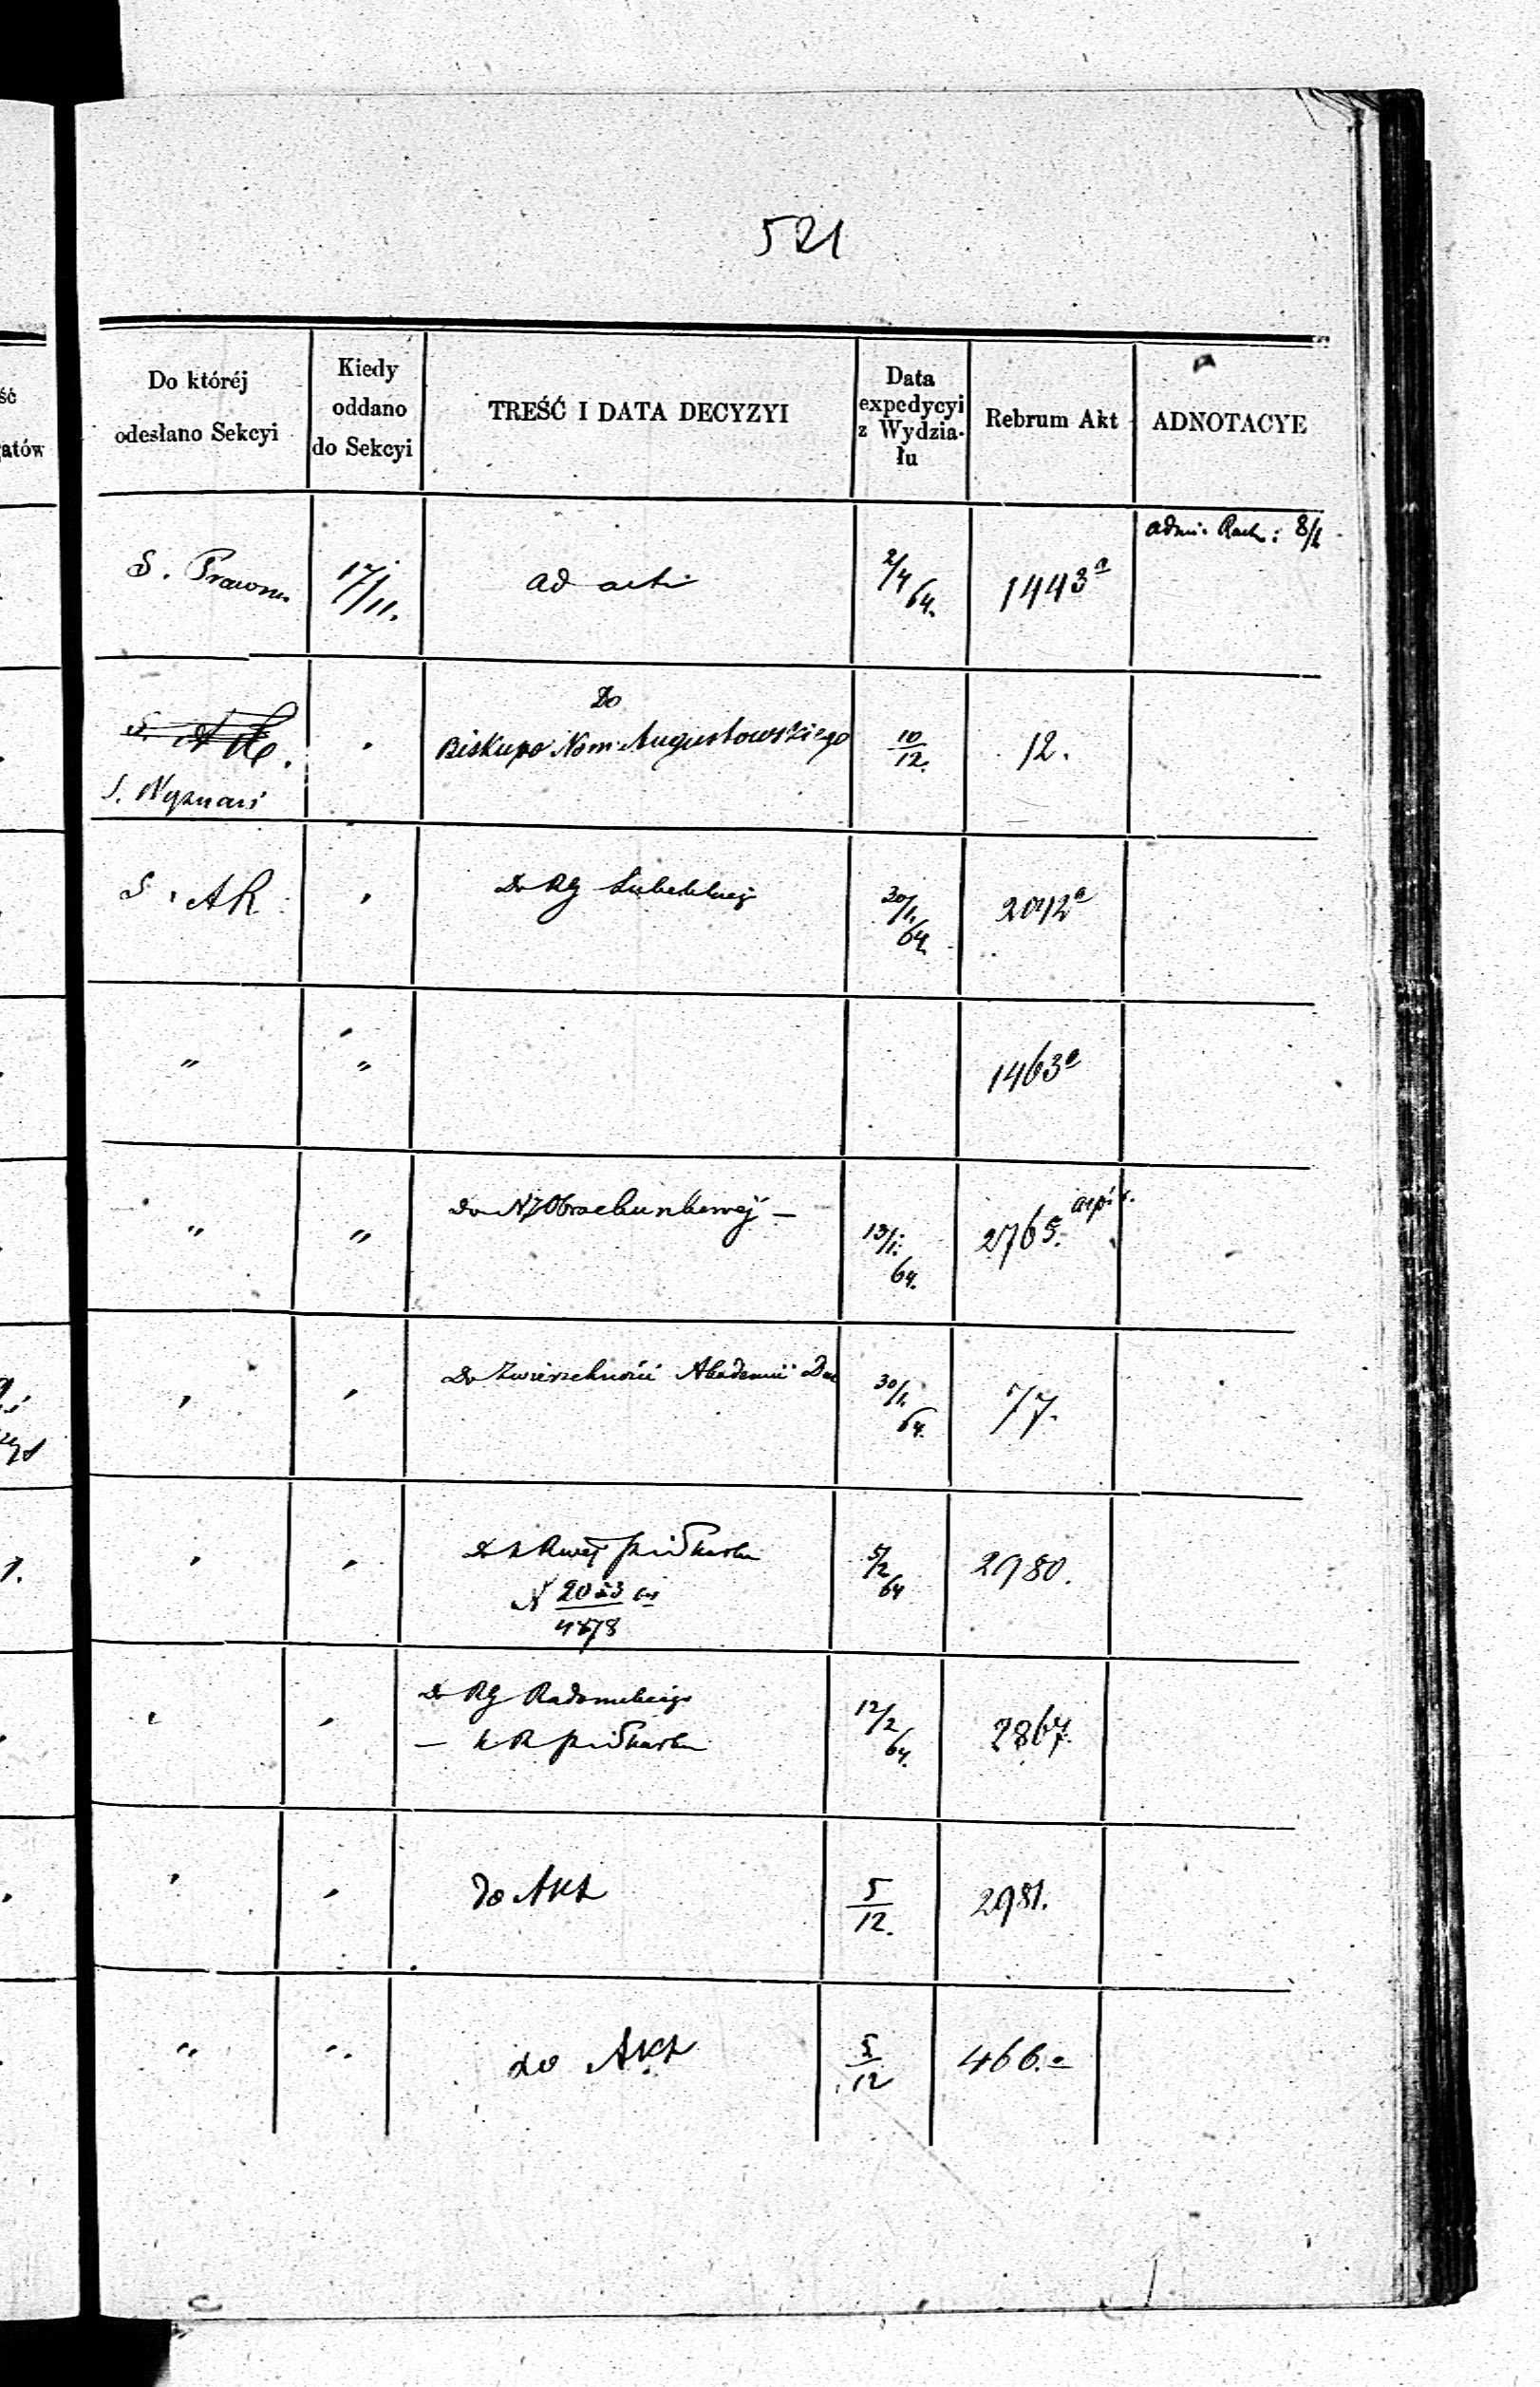 521
Do któréj odesłano Sekcyi
Kiedy oddano do Sekcyi
TREŚĆ I DATA DECYZYI
Data expedycyi z Wydziału
Rebrum Akt
ADNOTACYE
S. Prawna 17/11. ad acta 2/4 64. 1443a
S. Wyznań " Do
Biskupa Nom: Augustowskiego 10/12. 12.
S. AR " Do RG Lubelskiego 30/1 64. 2092a
" " 1463a
" " Do NJ Obrachunkowej — 13/1 64. 2765.
" " Do Zwierzchności Akademii Duc 30/1 64. 77.
" " 5/2 64 2980.
4878
" " Do RG Radomskiego 12/2 64. 2867.
" " do Akt 5/12. 2981.
" " do Akt 5/12 466.a